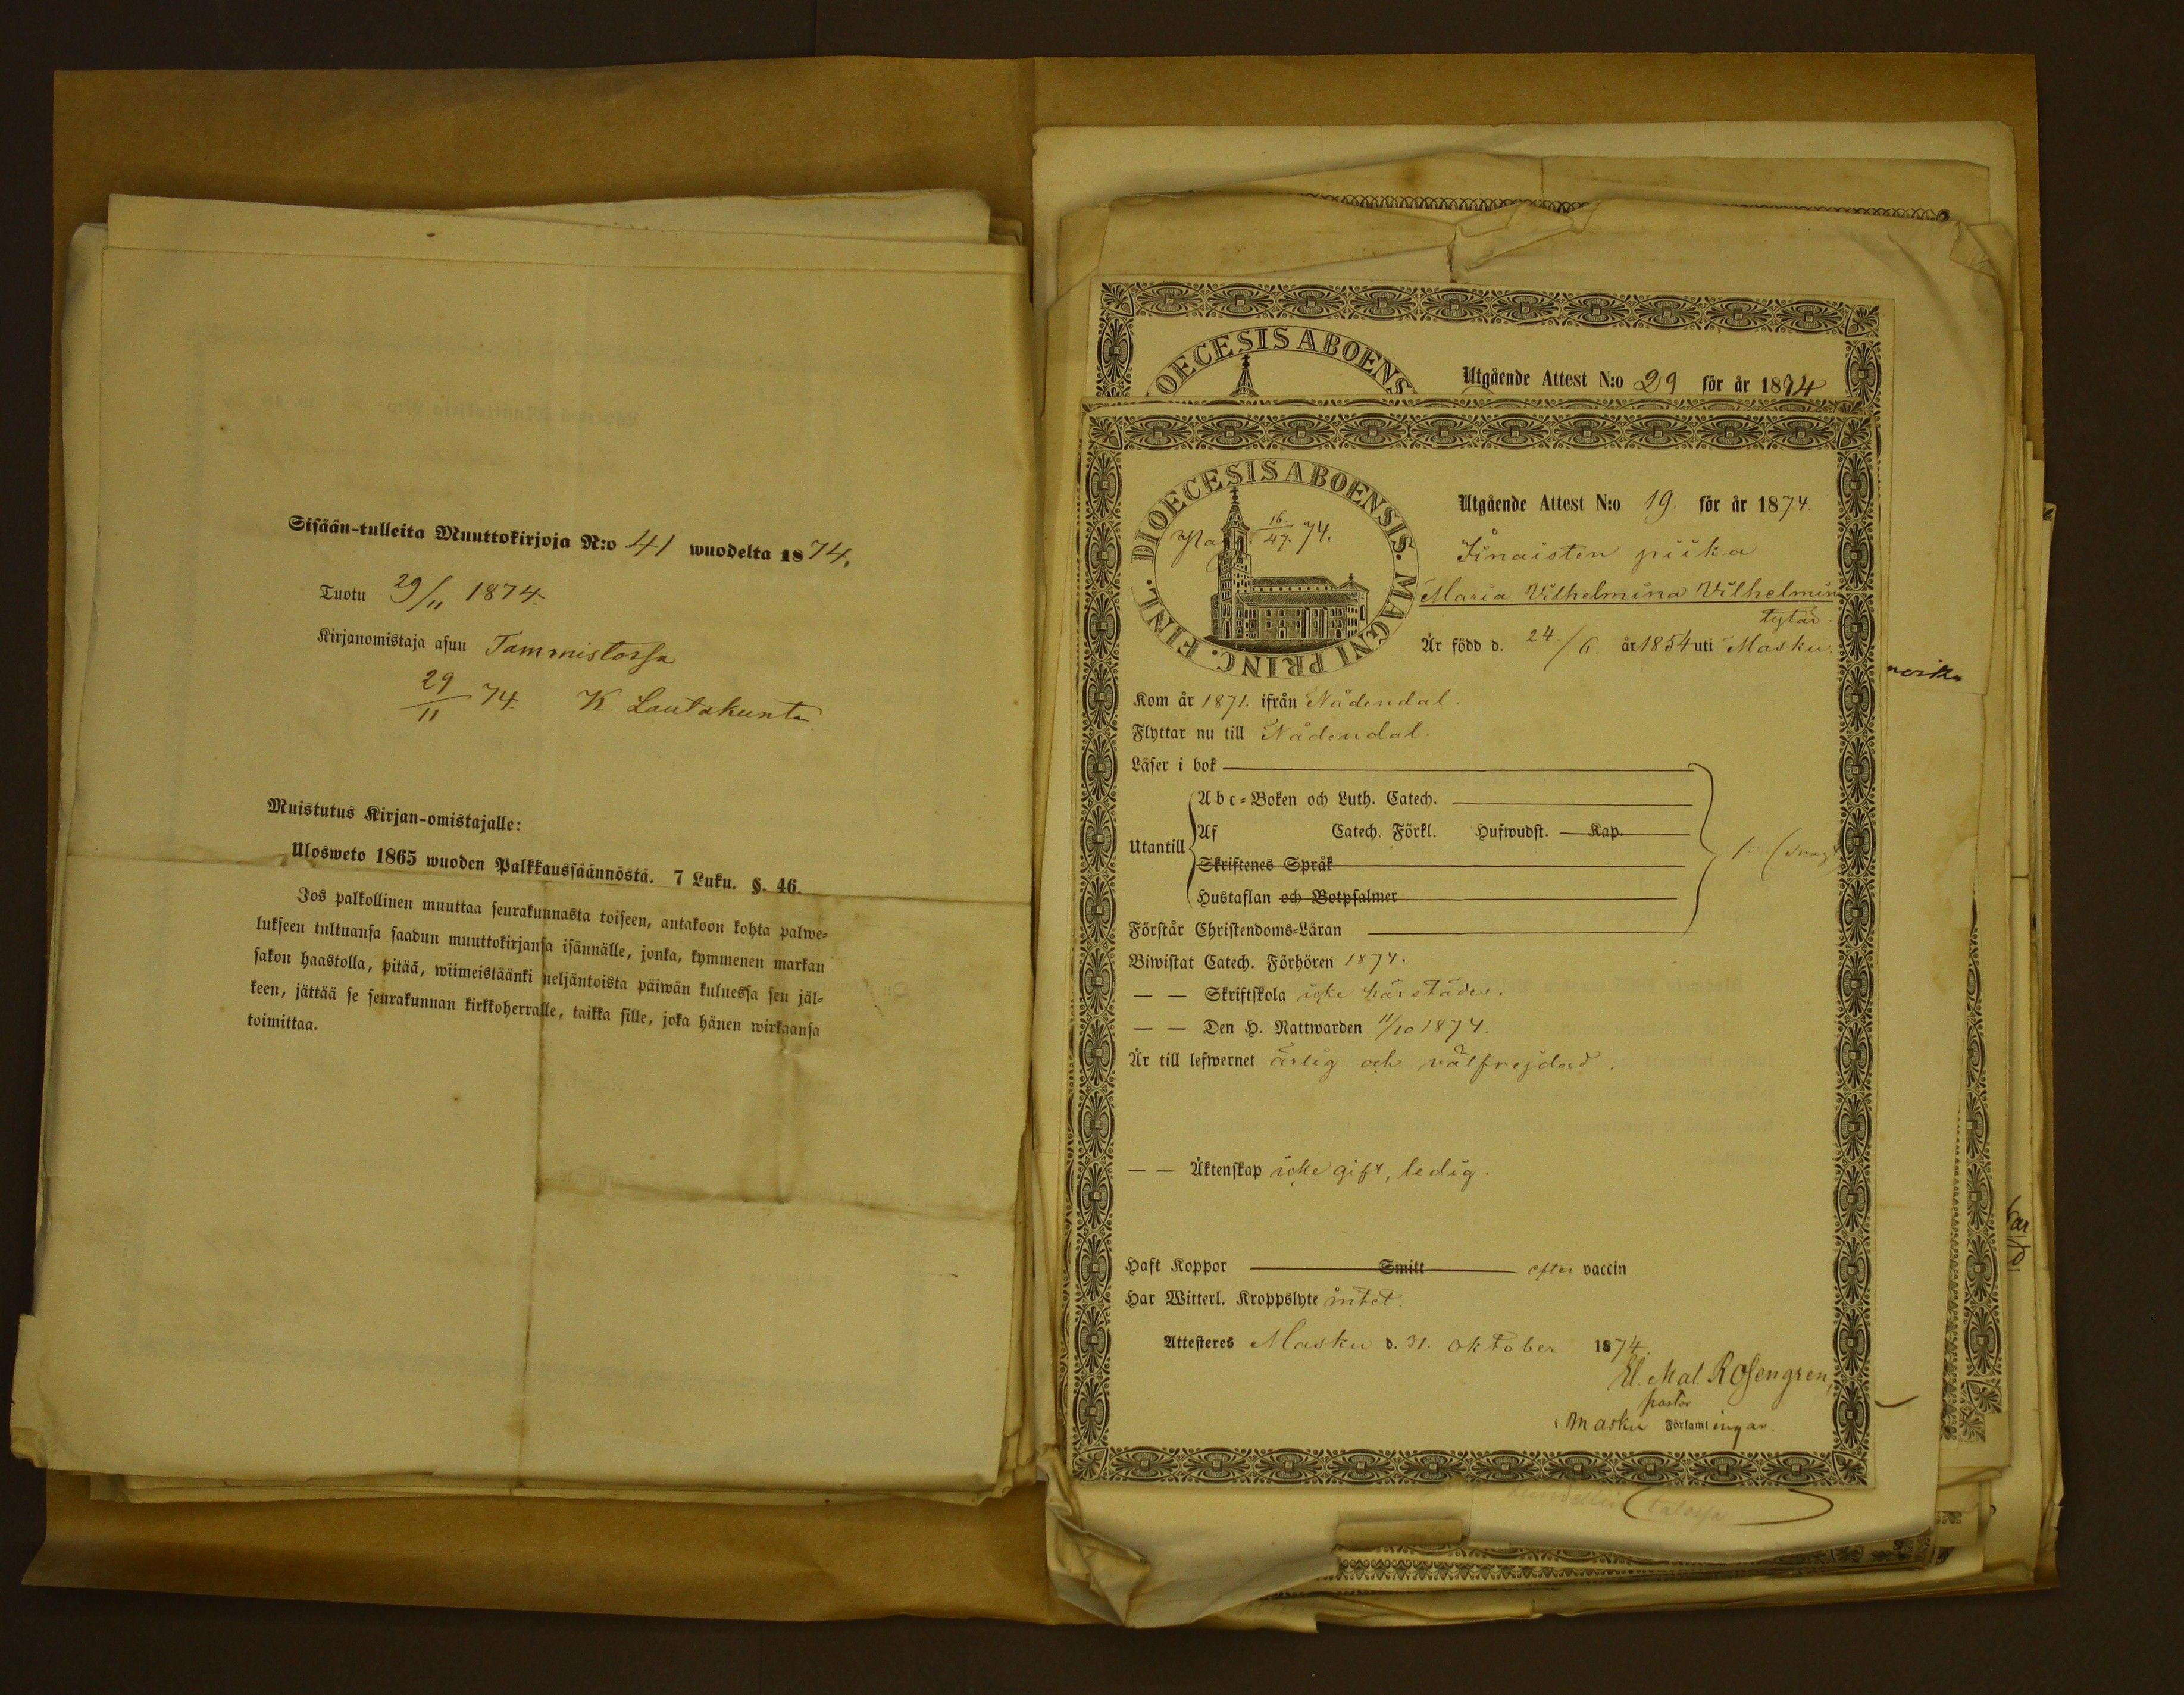 Sisään-tulleita Muuttokirjoja N:o 41 wuodelta 1874.
Tuotu 29/11 1874.
Kirjanomistaja asuu Tammistossa
29/11 74. K. Lautakunta.
Muistutus Kirjan-omistajalle:
Ulosweto 1865 wuoden Palkkaussäännöstä. 7 Luku. §. 46.
Jos palkollinen muuttaa seurakunnasta toiseen, antakoon kohta palwe=
lukseen tultuansa saadun muuttokirjansa isännälle, jonka, kymmenen markan
sakon haastolla, pitää, wiimeistäänki neljäntoista päiwän kuluessa sen jäl=
keen, jättää se seurakunnan kirkkoherralle, taikka sille, joka hänen wirkaansa
toimittaa.
OECESIS ABOENS
Utgående Attest N:o 29 för år 1874
DIOECESIS ABOENSIS. MAGNI PRINC. FINL.
16/47. 74.
Utgående Attest N:o 19. för år 1874.
piika
Maria Vilhelmina Vilhelmin
tytär.
Är född d. 24./6. år 1854 uti Masku.
Kom år 1871. ifrån Nådendal.
Flyttar nu till Nådendal.
Läser i bok
Utantill
Abc=Boken och Luth. Catech.
Af Catech. Förkl. Hufwudst. Kap.
Skriftenes Språk
Hustaflan och Botpsalmer
Förstår Christendoms=Läran
Biwistat Catech. Förhören 1874.
— — Skriftskola icke härstädes.
— — Den H. Nattwarden 11/10 1874.
Är till lefwernet ärlig och välfrejdad.
— — Äktenskap icke gift, ledig.
Haft Koppor Smitt efter vaccin
Har Witterl. Kroppslyte intet.
Attesteres Masku d. 31. Oktober 1874.
El. Mal. Rosengren,
pastor
i Masku Församlingar.
talossa